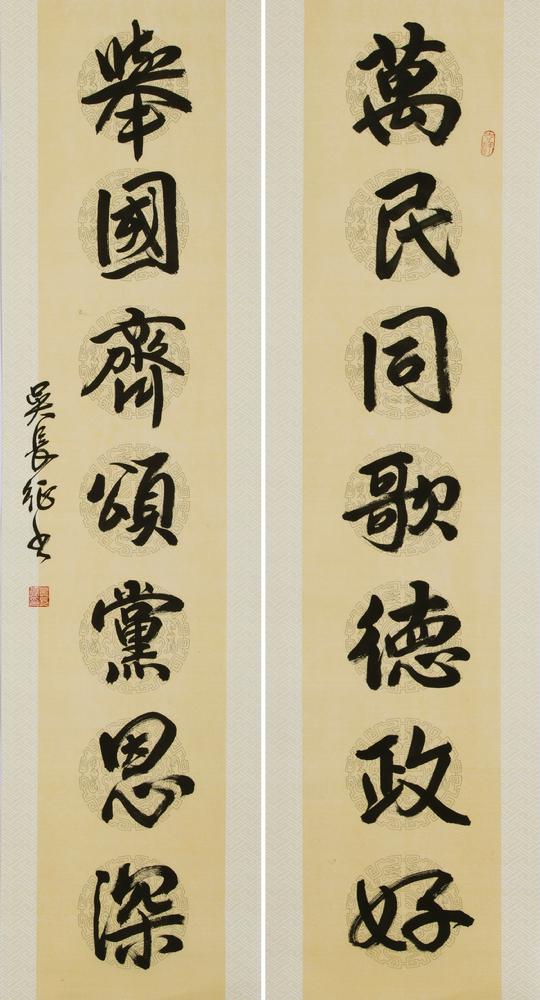 萬民同歌德政好
舉國齊頌黨恩深
吳長征书